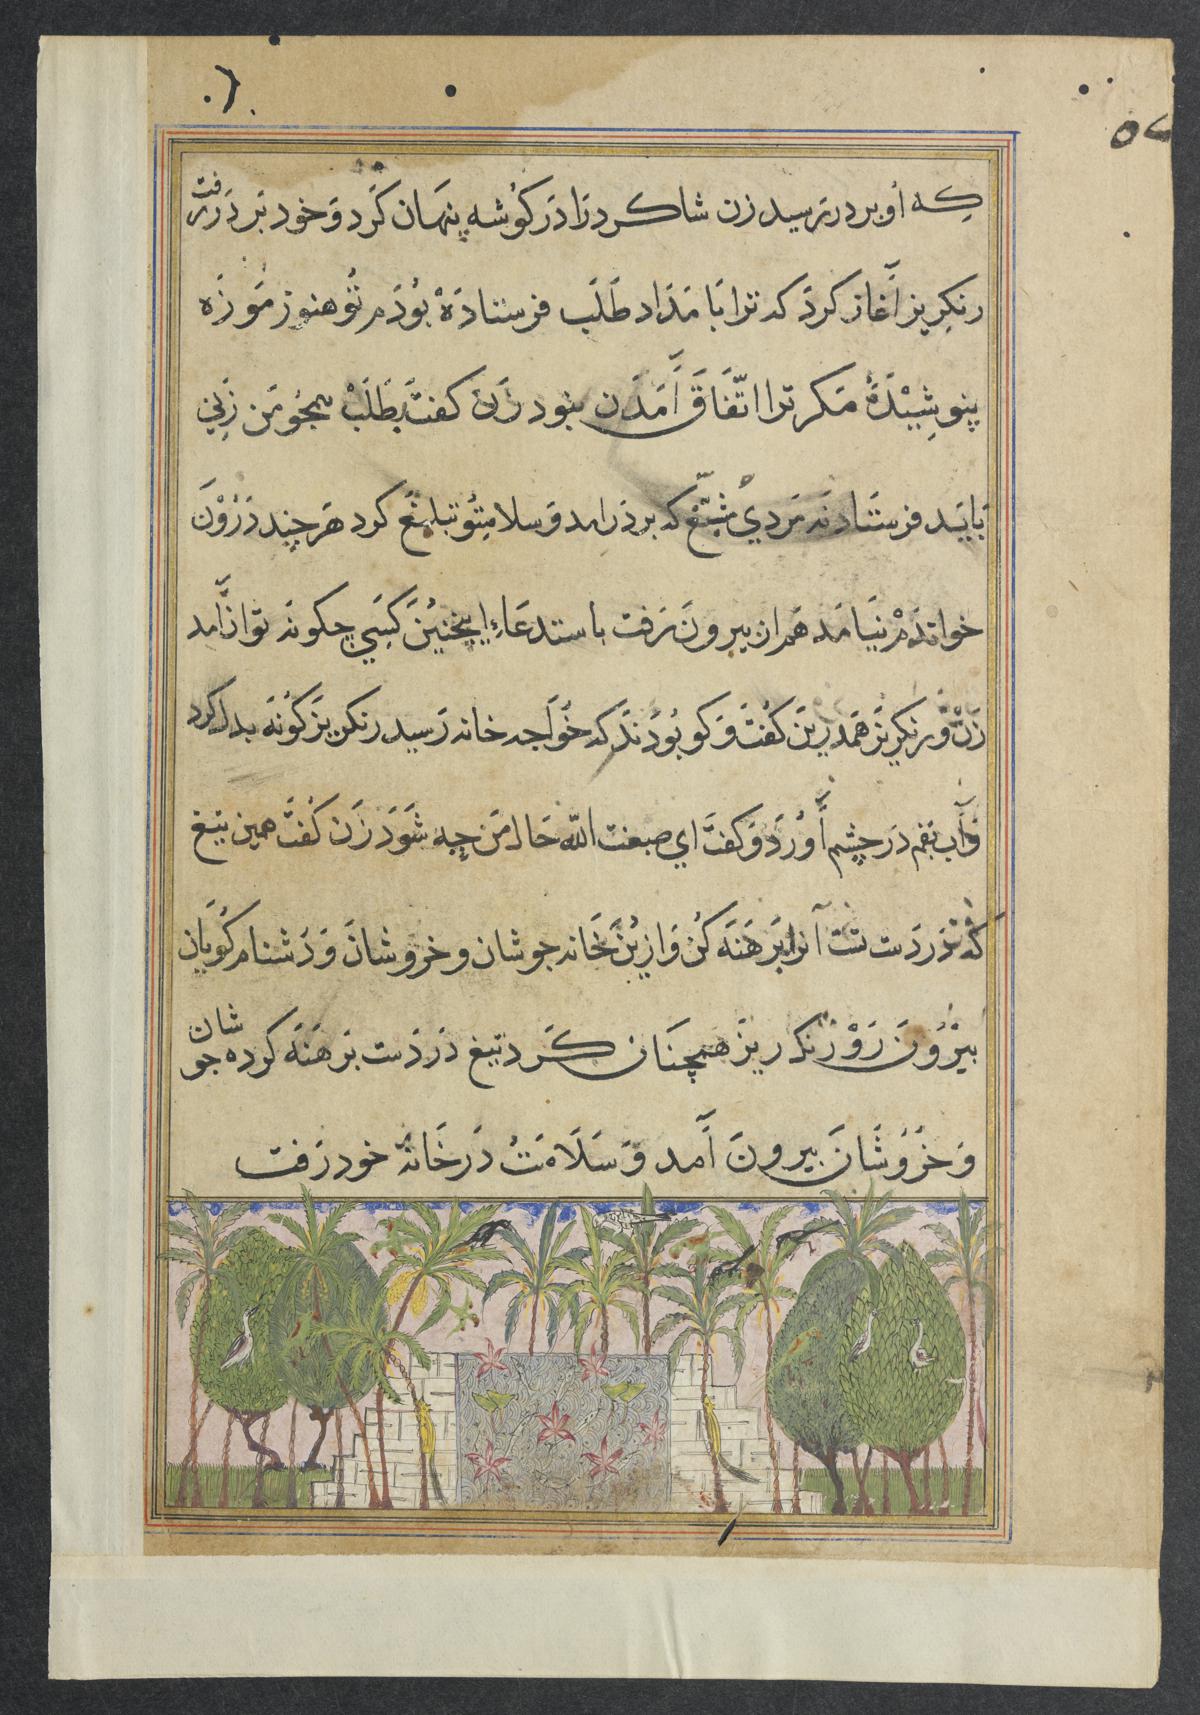 که او بر در رسید زن شاکرد را در کوشه پنهان کرد و خود بر در رفت
رنکریز آغاز کرد که ترا بامداد طلب فرستاده بودم تو هنوز موزه
پنوشیدۀ مکر ترا اتفاق آمدن نبود زن کفت بطلب همچو من زنی
باید فرستاد نه مردی که بر در امد و سلام تو تبلیغ کرد هر چند درون
خواندم نیامد هم از بیرون رفت باستدعاء اینچنین کسی چکونه توان آمد
زن و رنکریز همدرین کفت و کو بودند که خواجه خانه رسید رنکریز کونه بدل کرد
و آب بقم در چشم آورد و کفت ای صبغت الله حال من چه شود زن کفت همین تیغ
که در دست تست آنرا برهنه کن و ازین خانه جوشان و خروشان و دشنام کویان
بیرون رو رنکریز همچنان کرد تیغ در دست برهنه کرده جوشان
و خروشان بیرون آمد و سلامت در خانه خود رفت